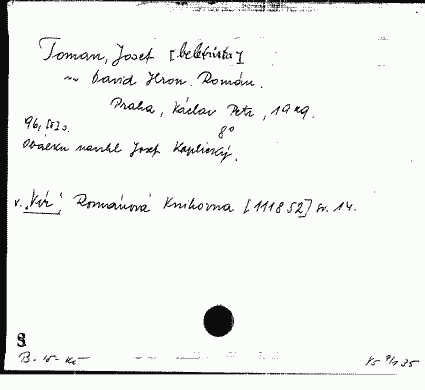 Toman, Josef [beletrista]
~ David Hron. Román.
Praha, Václav Petr, 19
8°
Obálku navrhl Josef Kaplický.
v. "Vír", Románová Knihovna [111852] sv. 14.
§
B. 15- Kč